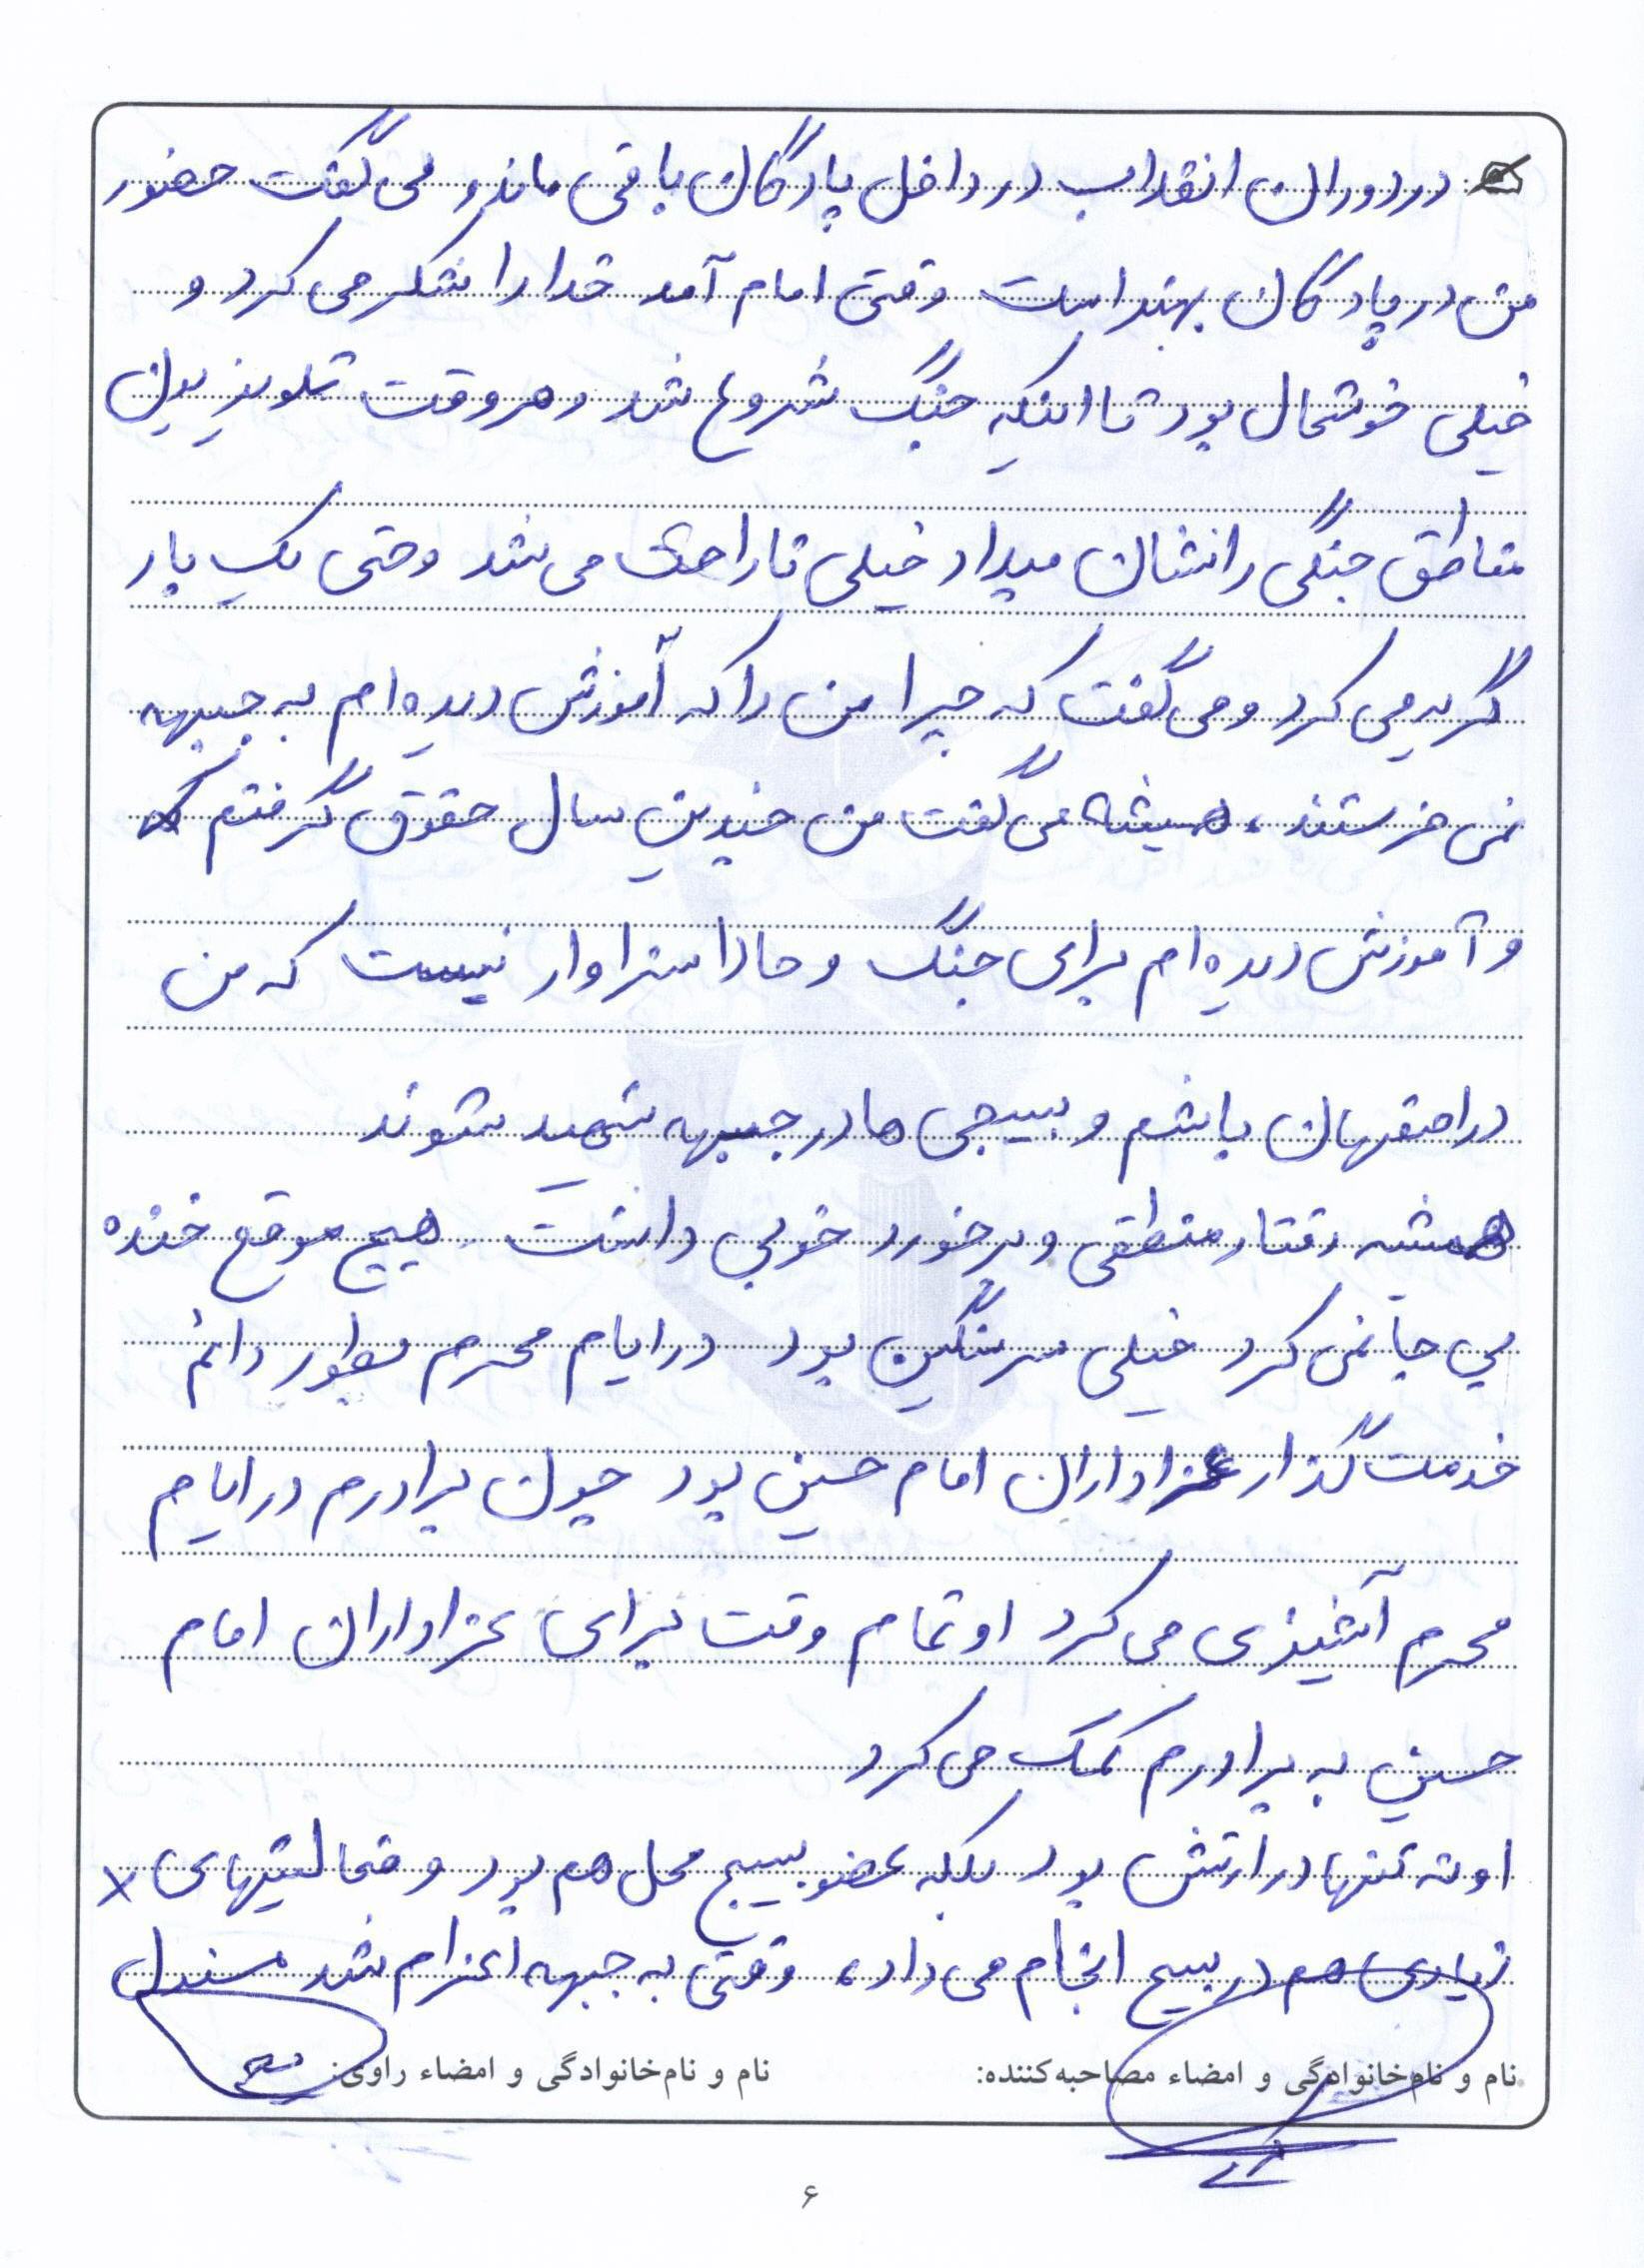 در دوران انقلاب در داخل پادگان باقی ماند و می گفت حضور
من در پادگان بهتر است وقتی امام آمد خدا را شکر می کرد و
خیلی خوشحال بود تا اینکه جنگ شروع شد و هر وقت تلویزیون
مناطق جنگی را نشان میداد خیلی ناراحت می شد و حتی یک بار
گریه می کرد و می گفت که چرا من را که آموزش دیده ام به جبهه
نمی فرستند، همیشه می گفت من چندین سال حقوق گرفتم
و آموزش دیده ام برای جنگ و حالا سزاوار نیست که من
در اصفهان باشم و بسیجی ها در جبهه شهید شوند
همیشه رفتار منطقی و برخورد خوبی داشت. هیچ موقع خنده
بی جا نمی کرد خیلی سرسنگین بود در ایام محرم بطور دائم
خدمت گذار عزاداران امام حسین بود چون برادرم در ایام
محرم آشپزی می کرد او تمام وقت برای عزاداران امام
حسین به برادرم کمک می کرد
او نه تنها در ارتش بود بلکه عضو بسیج محل هم بود و فعالیتهای
زیادی هم در بسیج انجام می داد، وقتی به جبهه اعزام شد مسئول
نام و نام‌خانوادگی و امضاء مصاحبه‌کننده: نام و نام‌خانوادگی و امضاء راوی:
۶